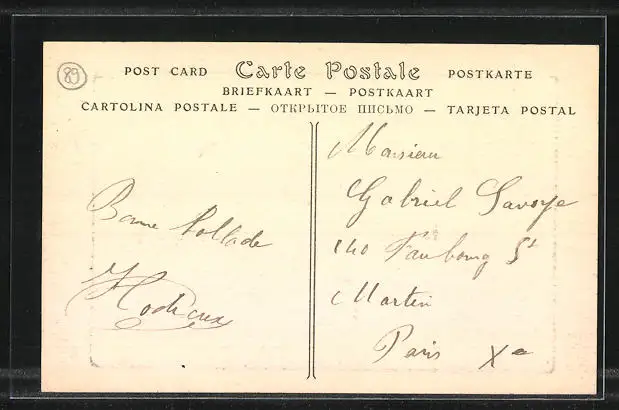 89
POST CARD Carte Postale POSTKARTE
BRIEFKAART — POSTKAART
CARTOLINA POSTALE — ОТКРЫТОЕ ПИСЬМО — TARJETA POSTAL
Bonne
Monsieur
Gabriel Savoye
140 Faubourg St
Martin
Paris Xe